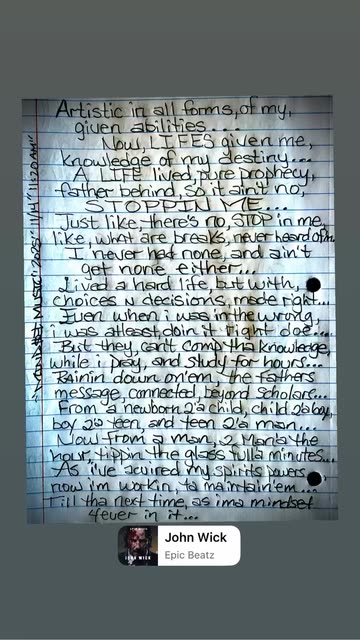 Artistic in all forms, of my,
given abilities...
Now, LIFES given me,
knowledge of my destiny...
A LIFE lived, pure prophecy,
father behind, so it ain't no,
STOPPIN ME...
Just like, there's no STOP in me,
like, what are breaks, never heard of'm
I never had none, and ain't
get none either...
Lived a hard life, but with,
choices N decisions, made right...
Even when i was in the wrong,
i was atleast, doin it right doe...
But they, can't comp tha knowledge,
while i pray, and study for hours...
RAinin down on'em, the fathers
message, connected, beyond scholars...
From a newborn 2'a child, child 2'a boy,
boy 2'a teen, and teen 2'a man...
Now from a man, 2 Man's the
hour tippin the glass fulla minutes...
As i've acuired my spirits powers
now i'm workin, to maintain'em...
Till tha next time, as ima mindset
4ever in it...
MUSIC 2025" 11/14" 11:20AM"
John Wick
Epic Beatz
JOHN WICK